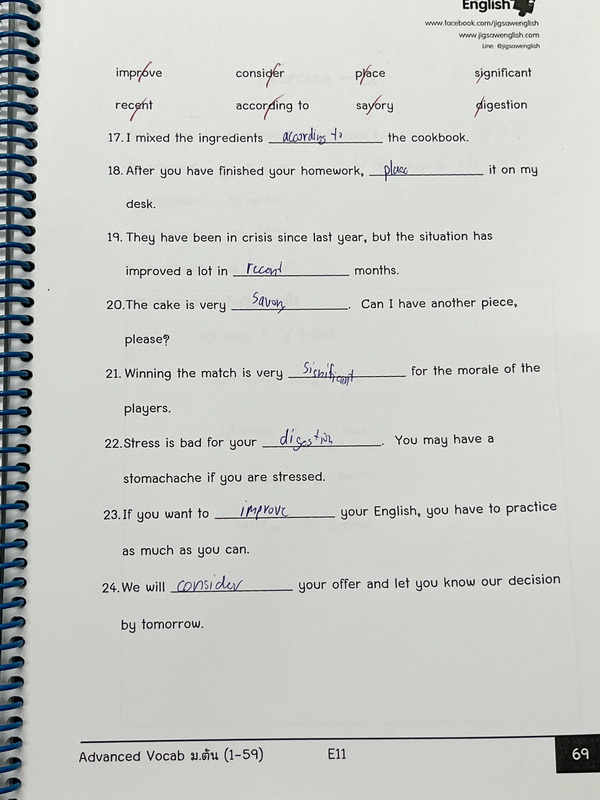 English
www.facebook.com/jigsawenglish
www.jigsawenglish.com
Line: @jigsawenglish
improve consider place significant
recent according to savory digestion
17. I mixed the ingredients acording to the cookbook.
18. After you have finished your homework, place it on my
desk.
19. They have been in crisis since last year, but the situation has
improved a lot in recent months.
20. The cake is very savory. Can I have another piece,
please?
21. Winning the match is very significant for the morale of the
players.
22. Stress is bad for your digestion. You may have a
stomachache if you are stressed.
23. If you want to improve your English, you have to practice
as much as you can.
24. We will consider your offer and let you know our decision
by tomorrow.
Advanced Vocab ม.ต้น (1-59) E11 69